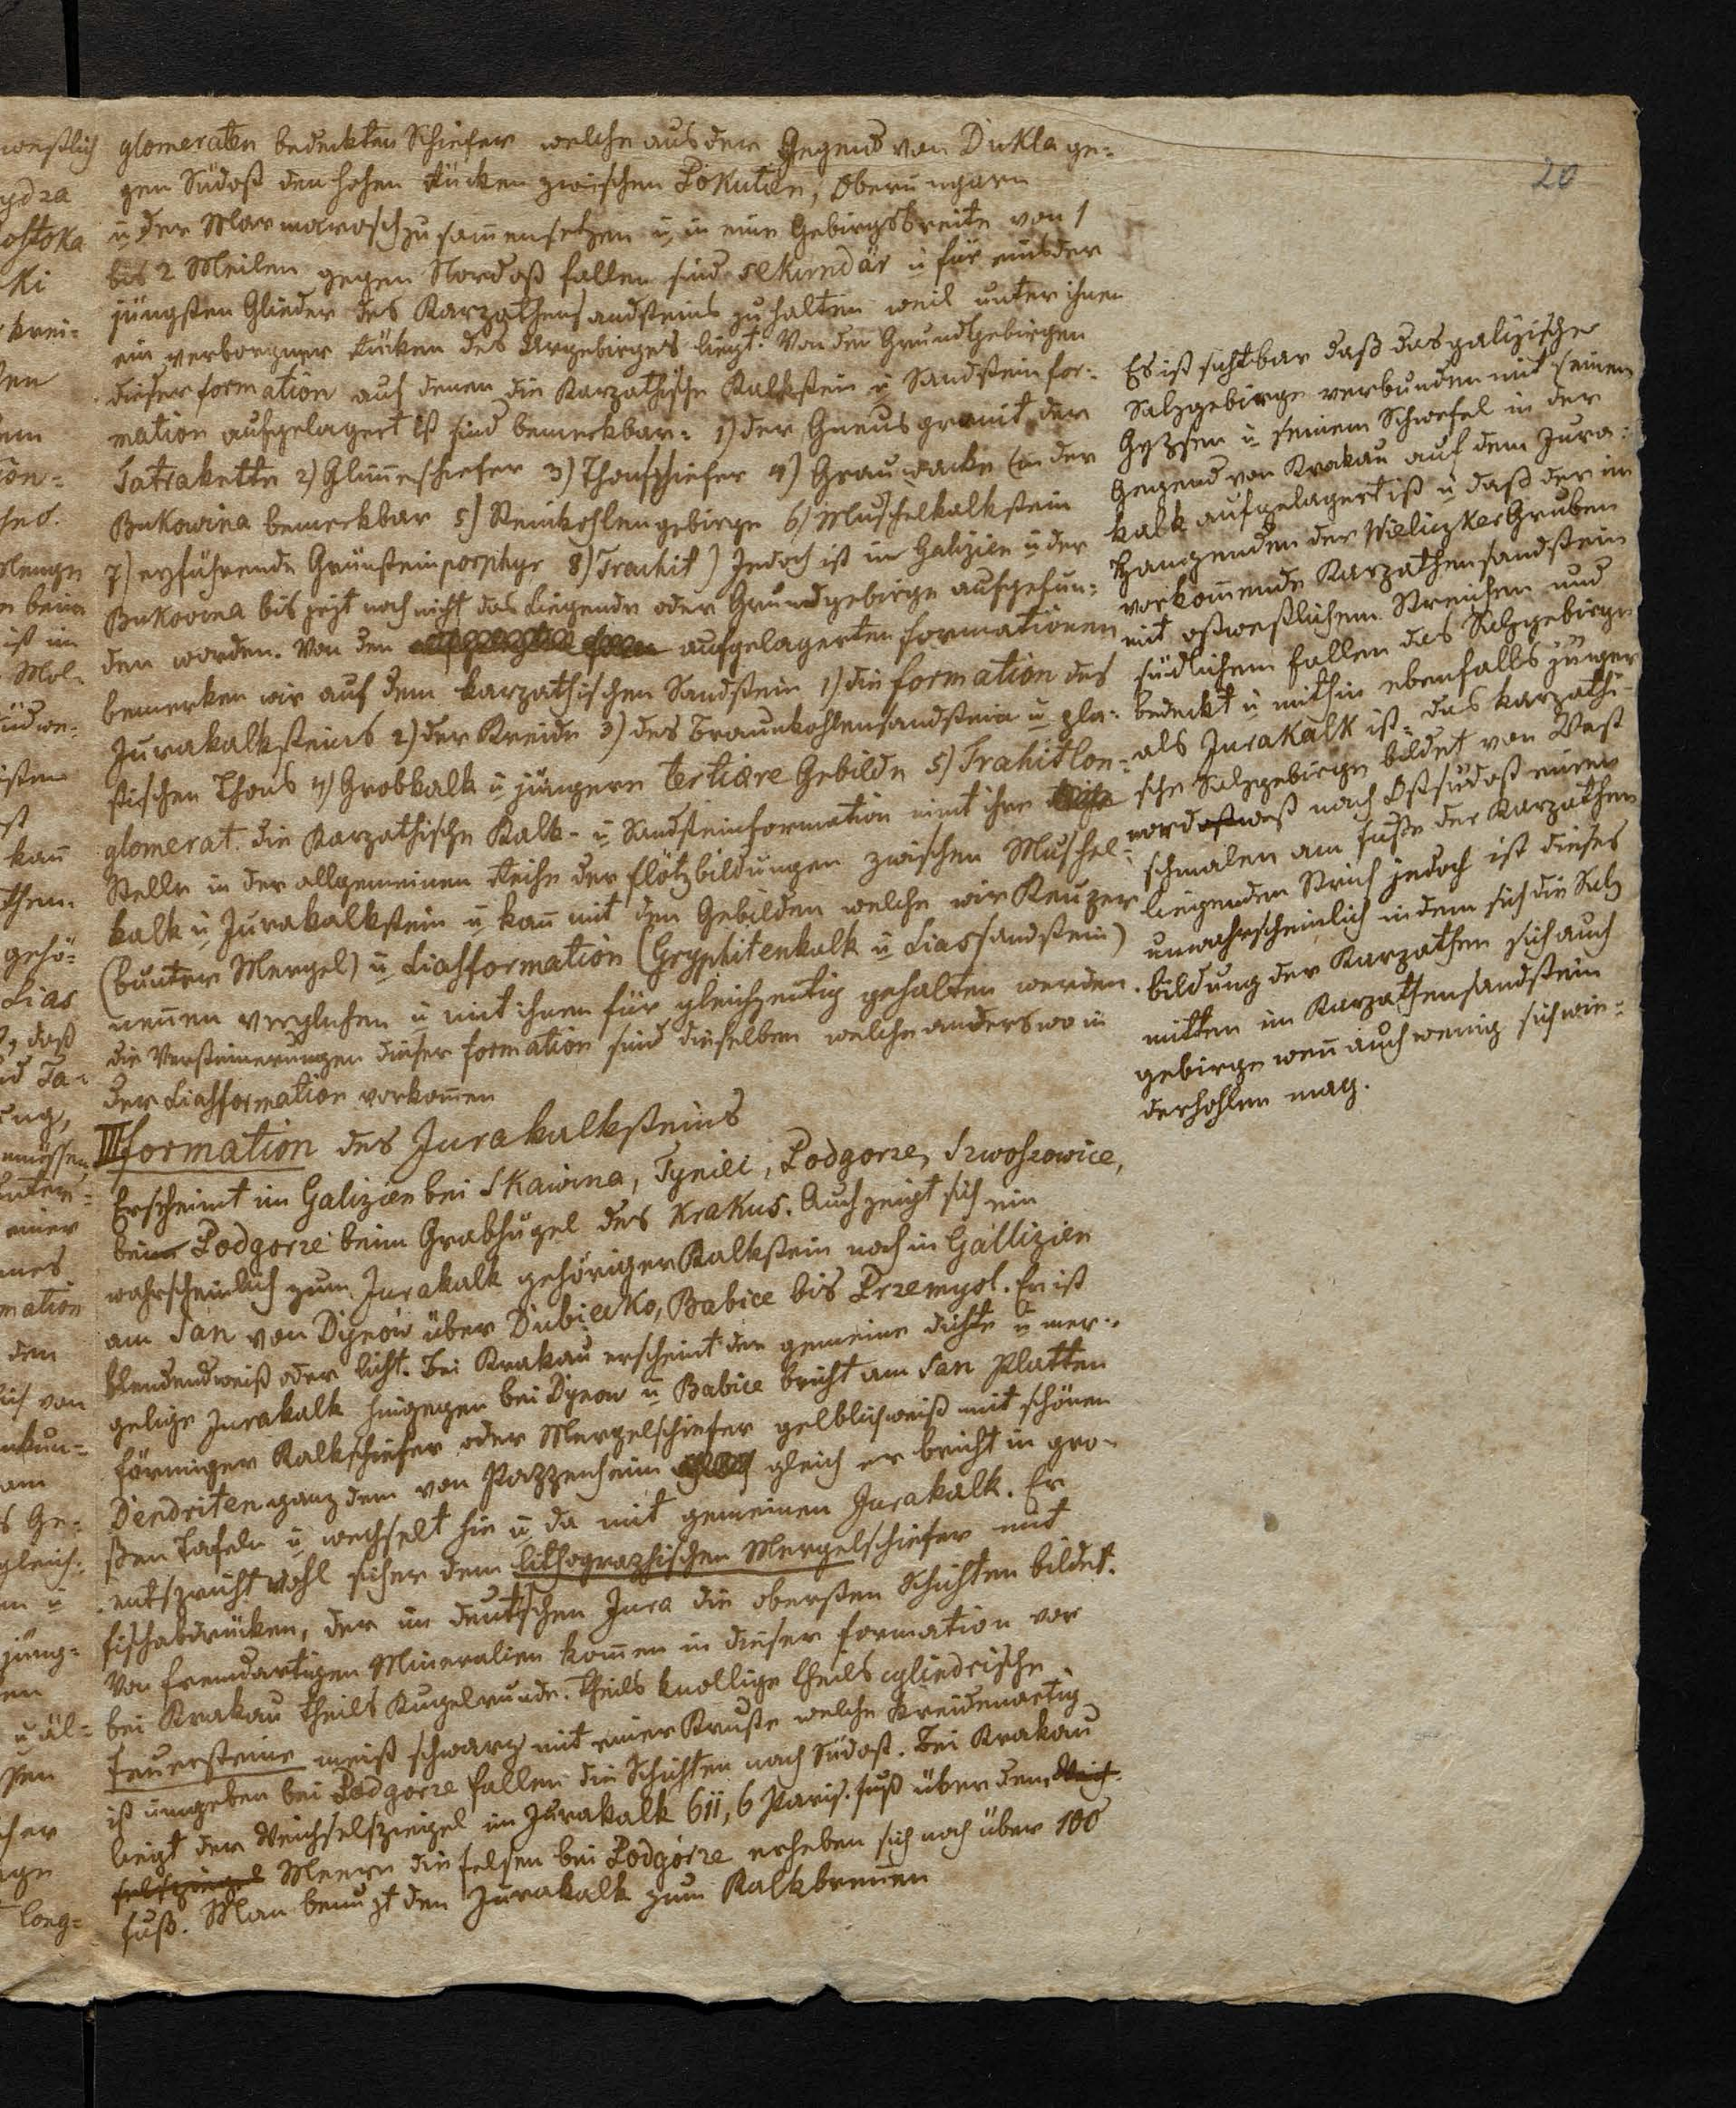 20
glomeraten bedeckten Schiefer welche aus der Gegend von Dukla ge-
gen Südost den hohen Rücken zwischen Pokutien, Oberungarn
u der Marmarosch zusam̄ensetzen u in eine Gebirgsbreite von 1
bis 2 Meilen gegen Nordost fallen sind sekundär u für eins der
jüngsten Glieder des Karpathensandsteins zu halten weil unter ihnen
ein verborgner Rücken des Urgebirges liegt. Von den Grundgebirgen
dieser formation auf denen die Karpathische Kalkstein u Sandsteinfor-
mation aufgelagert ist sind bemerkbar: 1) der Gneusgranit der
Tatrakette 2) Glim̄erschiefer 3) Thonschiefer 4) Grauwacke (in der
Bukowina bemerkbar 5) Steinkohlengebirge 6) Muschelkalkstein
7) erzführende Grünsteinporphyr 8) Trachit) Jedoch ist in Galizien u der
Bukovina bis jezt noch nicht das Liegende oder Grundgebirge aufgefun-
den worden. Von den aufgelagerten formationen
bemerken wir auf dem karpathischen Sandstein 1) die formation des
Jurakalksteins 2) der Kreide 3) des Braunkohlensandstein u pla-
stischen Thons 4) Grobkalk u jüngern tertiäre Gebilde 5) Trahitlon-
glomerat. die Karpathische Kalk- u Sandsteinformation nim̄t ihre
Stelle in der allgemeinen Reihe der flötzbildungen zwischen Muschel-
kalk u Jurakalkstein u kan̄ mit den Gebilden welche wir Keuper
(bunter Mergel) u Liasformation (Gryphitenkalk u Liassandstein)
nen̄en verglichen u mit ihnen für gleichzeitig gehalten werden.
die Versteinerungen dieser formation sind dieselben welche anderswo in
der Liasformation vorkom̄en
III formation des Jurakalksteins
Erscheint im Galizien bei Skawina, Tyniec, Podgorze, Swoszowice,
beim Podgorze beim Grabhügel des Krakus. Auch zeigt sich ein
wahrscheinlich zum Jurakalk gehöriger Kalkstein noch in Gallizien
am San von Dynow über Dubiecko, Babice bis Przemysl. Er ist
blendendweiß oder licht. Bei Krakau erscheint der gemeine dichte u mer-
gelige Jurakalk hingegen bei Dynow u Babice bricht am San Platten
förmiger Kalkschiefer oder Mergelschiefer gelblichweiß mit schönen
Dendriten ganz dem von Pappenheim gleich er bricht in gro-
ßen Tafeln u wechselt hie u da mit gemeinen Jurakalk. Er
entspricht wohl sicher dem lithographischen Mergelschiefer mit
fischabdrücken, der im deutschen Jura die obersten Schichten bildet.
Von fremdartigen Mineralien kom̄en in dieser formation vor
bei Krakau theils Kugelrunde. theils knollige theils cyliedrische
feuersteine meist schwarz mit einer Kruste welche kreidenartig
ist umgeben bei Podgorze fallen die Schichten nach Südost. Bei Krakau
liegt der Weichselspiegel im Jurakalk 611, 6 Paris. fuß über dem Weich-
selspiegel Meere die felsen bei Podgórze erheben sich noch über 100
fuß. Man benuzt den Jurakalk zum Kalkbren̄en
Es ist sichtbar daß das galizische
Salzgebirge verbunden mit seinem
Gypsen u seinem Schwefel in der
Gegend von Krakau auf dem Jura-
kalk aufgelagert ist u daß der im
Hangenden der Wieliczker Gruben
vorkom̄ende Karpathensandstein
mit ostwestlichem Streichen und
südlichem fallen das Salzgebirge
bedeckt u mithin ebenfalls jünger
als Jurakalk ist. das karpathi-
sche Salzgebirge bildet von West
nordostwest nach Ostsüdost einen
schmalen am fuße der Karpathen
liegenden Strich jedoch ist dieses
unwahrscheinlich indem sich die Salz
bildung der Karpathen sich auch
mitten im Karpathensandstein
gebirge wen̄ auch wenig sich wie-
derhohlen mag.